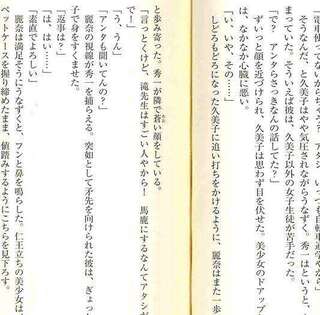 電車使ってないからちゃう？　アタシ、いっつも自転車通学やから」
そうなんだ、と久美子はやや気圧されながらうなずく。秀一はというと、
まっていた。そういえば彼は、久美子以外の女子生徒が苦手だった。
「で？　アンタらさっきなんの話してた？」
ずいっと顔を近づけられ、久美子は思わず目を伏せた。美少女のドアップ
は、なかなか心臓に悪い。
「い、いや、その……」
しどろもどろになった久美子に追い打ちをかけるように、麗奈はまた一歩
と歩み寄った。秀一が隣で蒼い顔をしている。
「言っとくけど、滝先生はすごい人やから！　馬鹿にするなんてアタシが
で！」
「う、うん」
「アンタも聞いてんの？」
麗奈の視線が秀一を捕らえる。突如として矛先を向けられた彼は、ぎょっ
子で身をすくませた。
「返事は？」
「は、はい……」
「素直でよろしい」
麗奈は満足そうにうなずくと、フンと鼻を鳴らした。仁王立ちの美少女は、
ペットケースを握り締めたまま、値踏みするようにこちらを見下ろす。